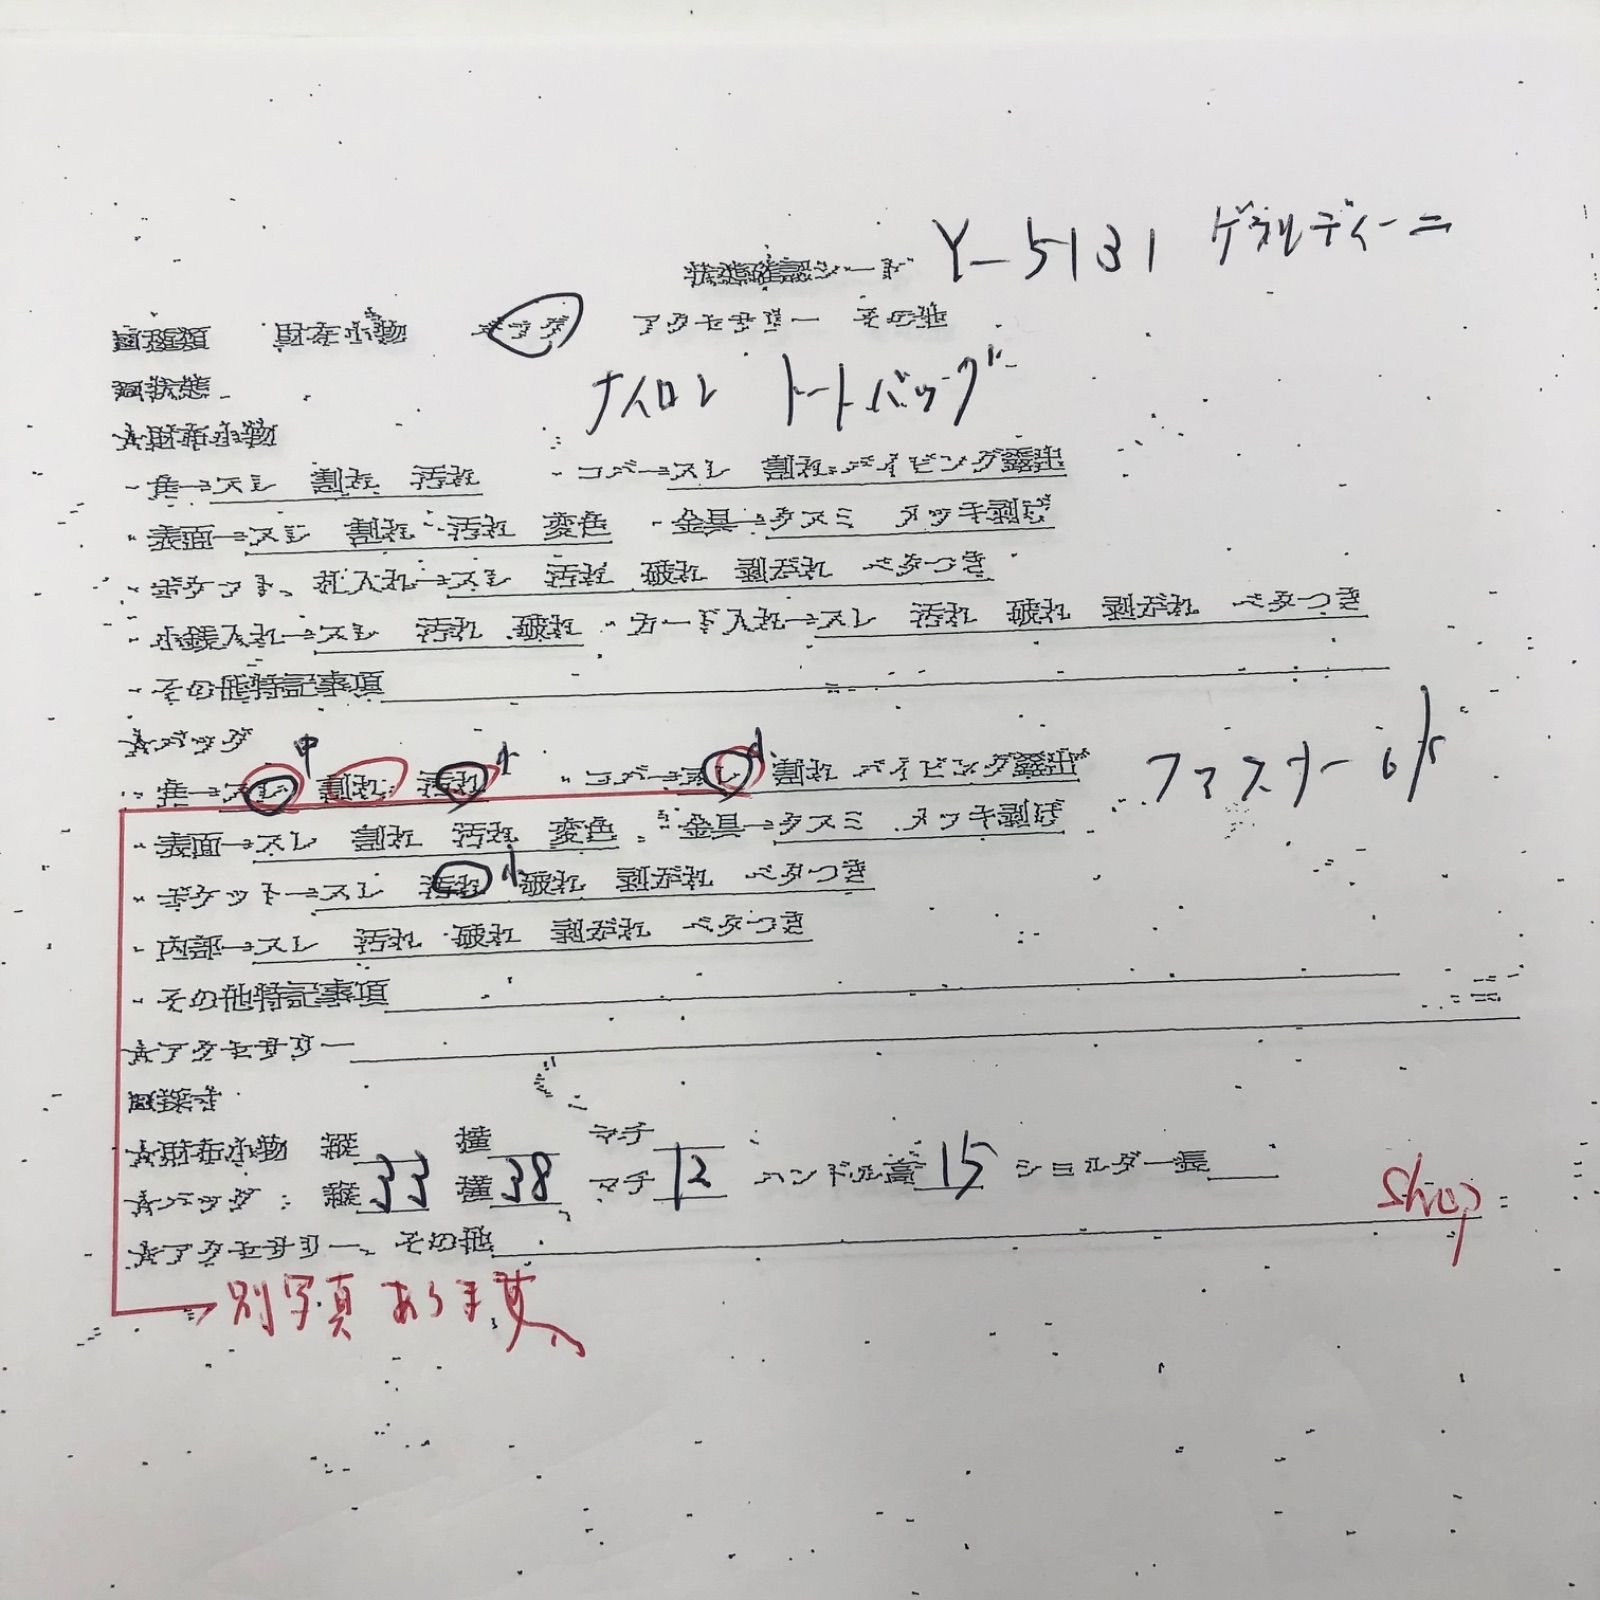 状態確認シート Y-5131 ゲラルディーニ
■種類 財布小物 バッグ アクセサリー その他
■状態
ナイロン トートバッグ
☆財布小物
・角→スレ 割れ 汚れ ・コバ→スレ 割れ パイピング露出
・表面→スレ 割れ 汚れ 変色 ・金具→クスミ メッキ剥げ
・ポケット、札入れ→スレ 汚れ 破れ 型崩れ ベタつき
・小銭入れ→スレ 汚れ 破れ ・カード入れ→スレ 汚れ 破れ 型崩れ ベタつき
・その他特記事項
☆バッグ
・角→スレ 中 割れ 汚れ 小 ・コバ→スレ 小 割れ パイピング露出 ファスナー
・表面→スレ 割れ 汚れ 変色 ・金具→クスミ メッキ剥げ
・ポケット→スレ 汚れ 小 破れ 型崩れ ベタつき
・内部→スレ 汚れ 破れ 型崩れ ベタつき
・その他特記事項
☆アクセサリー
■採寸
☆財布小物 縦 横 マチ
☆バッグ: 縦33 横38 マチ12 ハンドル高15 ショルダー長
Shop
☆アクセサリー、その他
別写真あります。